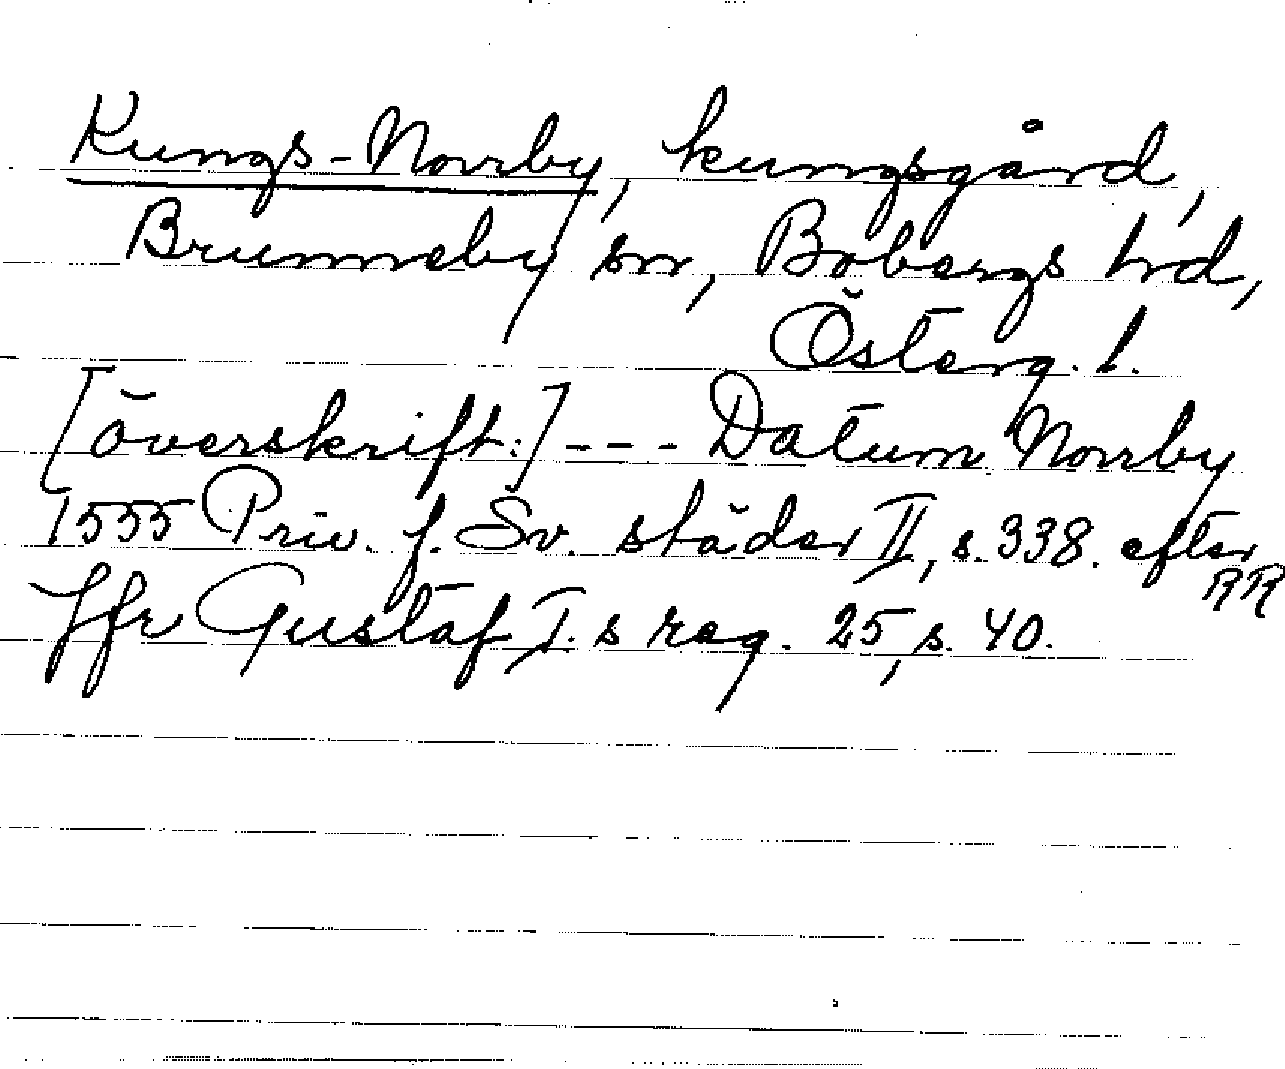 Kungs-Norrby, kungsgård,
Brunneby sn, Bobergs hd,
Österg. l.
[överskrift:] --- Datum Norrby
1555 Priv. f. Sv. städer II, s. 338. efter
RR
Jfr Gustaf I.s reg. 25, s. 40.